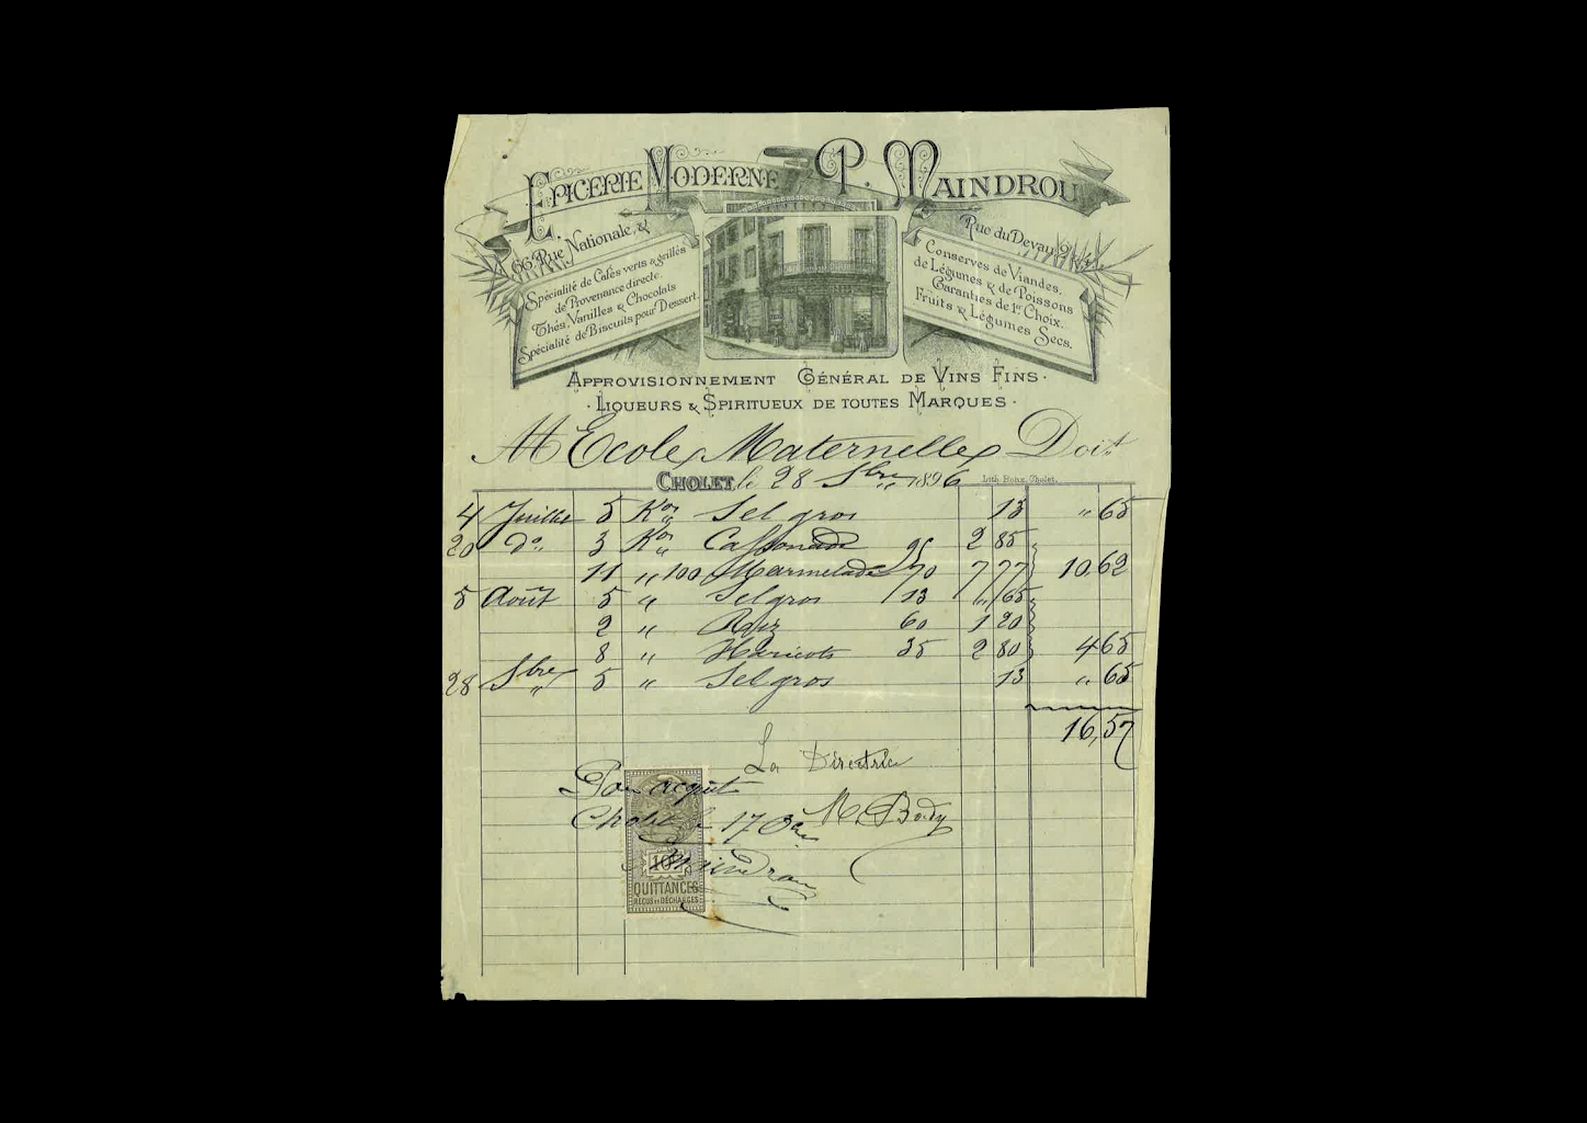 EPICERIE MODERNE P. MAINDROU
66. Rue Nationale, &
Rue du Devau, 2
Spécialité de Cafés verts & grillés
de Provenance directe.
Thés, Vanilles & Chocolats
Spécialité de Biscuits pour Dessert.
Conserves de Viandes,
de Légumes & de Poissons
Garanties de 1er Choix.
Fruits & Légumes Secs.
APPROVISIONNEMENT GÉNÉRAL DE VINS FINS.
· LIQUEURS & SPIRITUEUX DE TOUTES MARQUES ·
M Ecole Maternelle Doit
CHOLET, le 28 Sbre 1896
Lith. Cholet.
4 Juillet 5 Kos Sel gros 13 " 65
20 do 3 Kos Cassonade 95 2 85
11 " 100 Marmelade 70 7 77 10,62
5 Août 5 " Sel gros 13 " 65
2 " Riz 60 1 20
8 " Haricots 35 2 80 4 65
28 Sbre 5 " Sel gros 13 " 65
16,57
La Directrice
Pour acquit
Cholet le 17 8bre
M. Body
Maindrou
10c
QUITTANCES
REÇUS ET DÉCHARGES